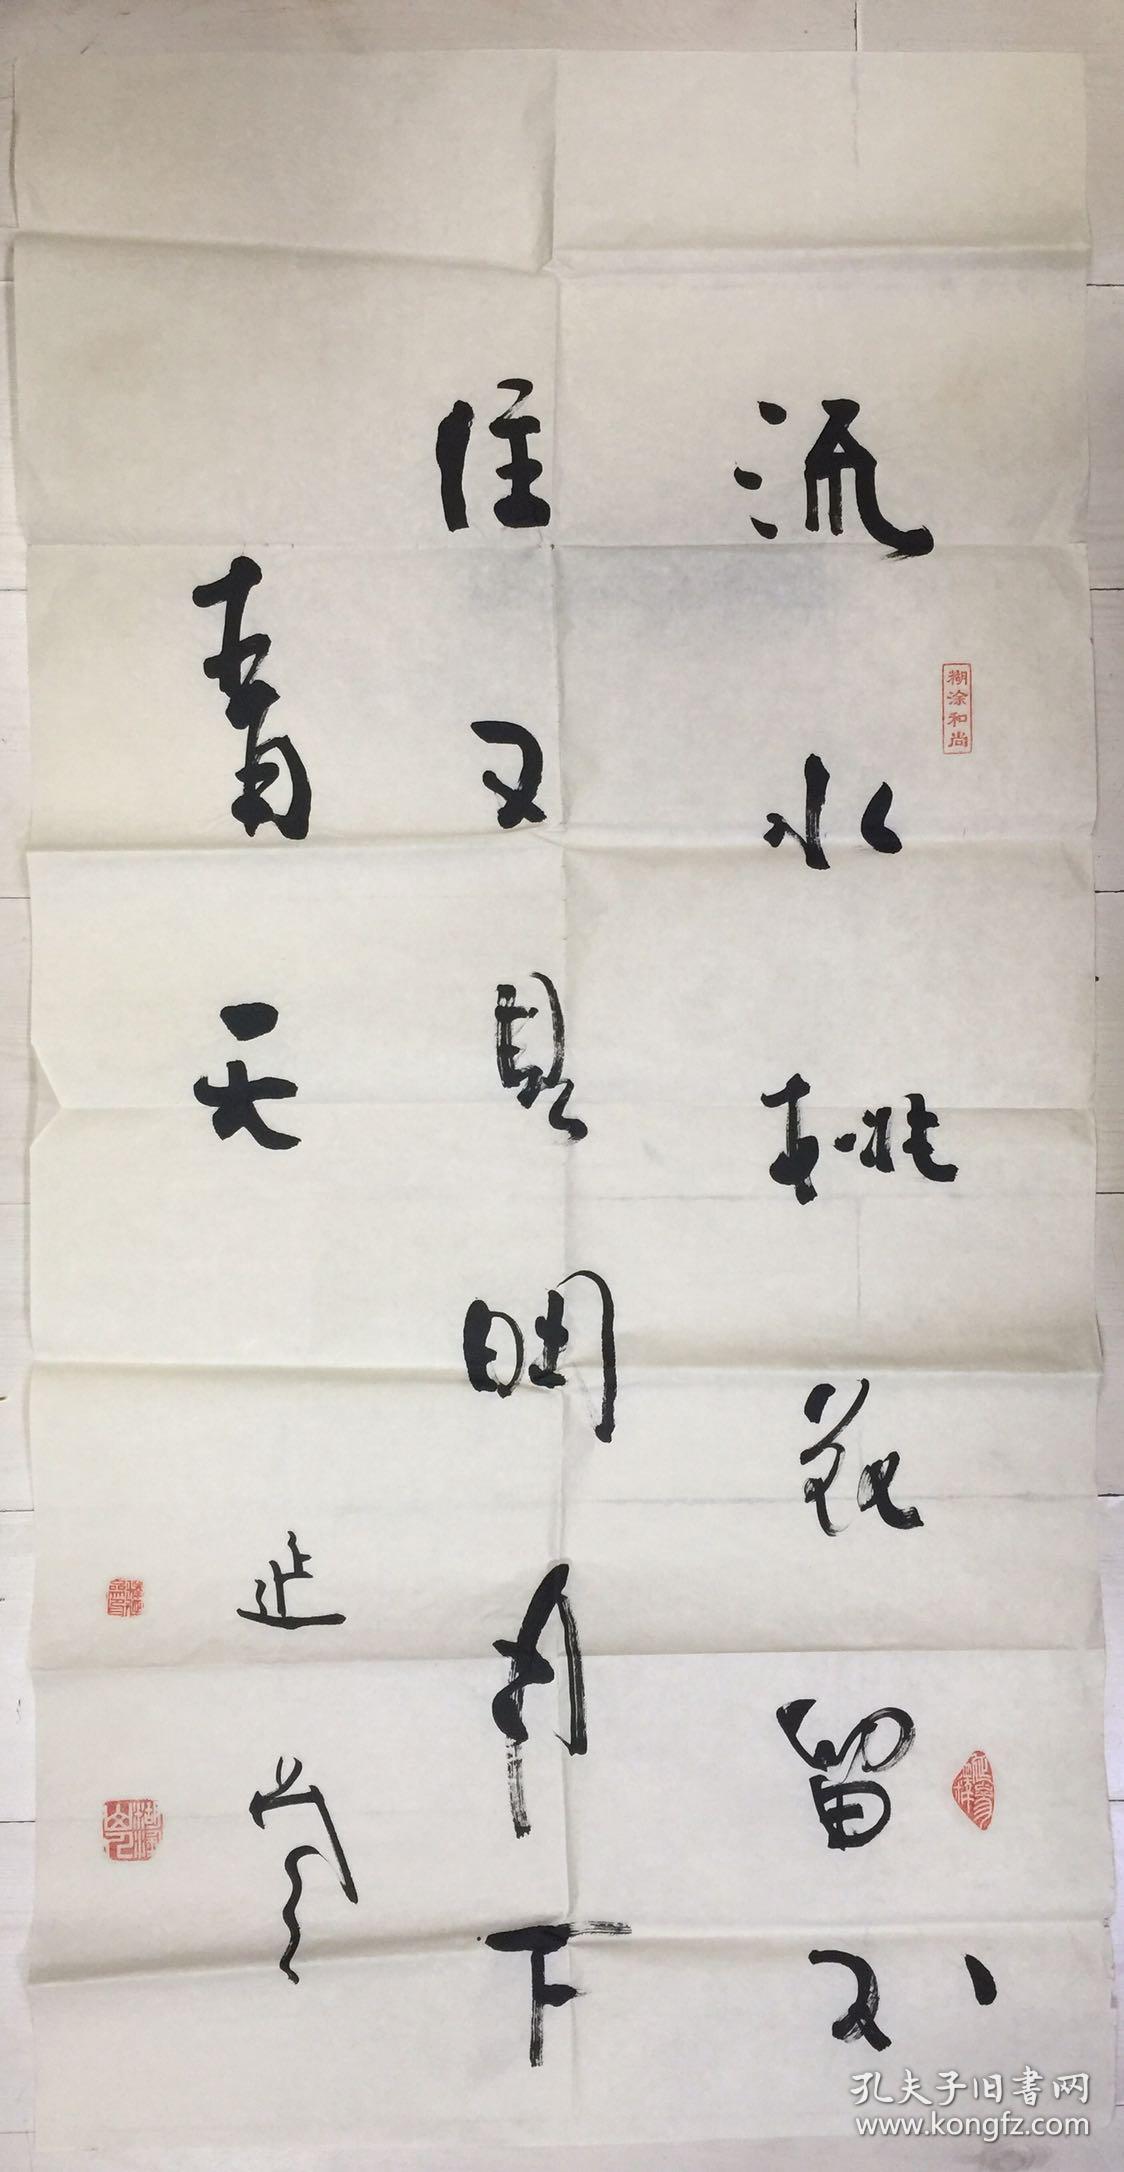 流水桃花留不
住又見明月下
青天
延參
糊涂和尚
孔夫子旧書网
www.kongfz.com